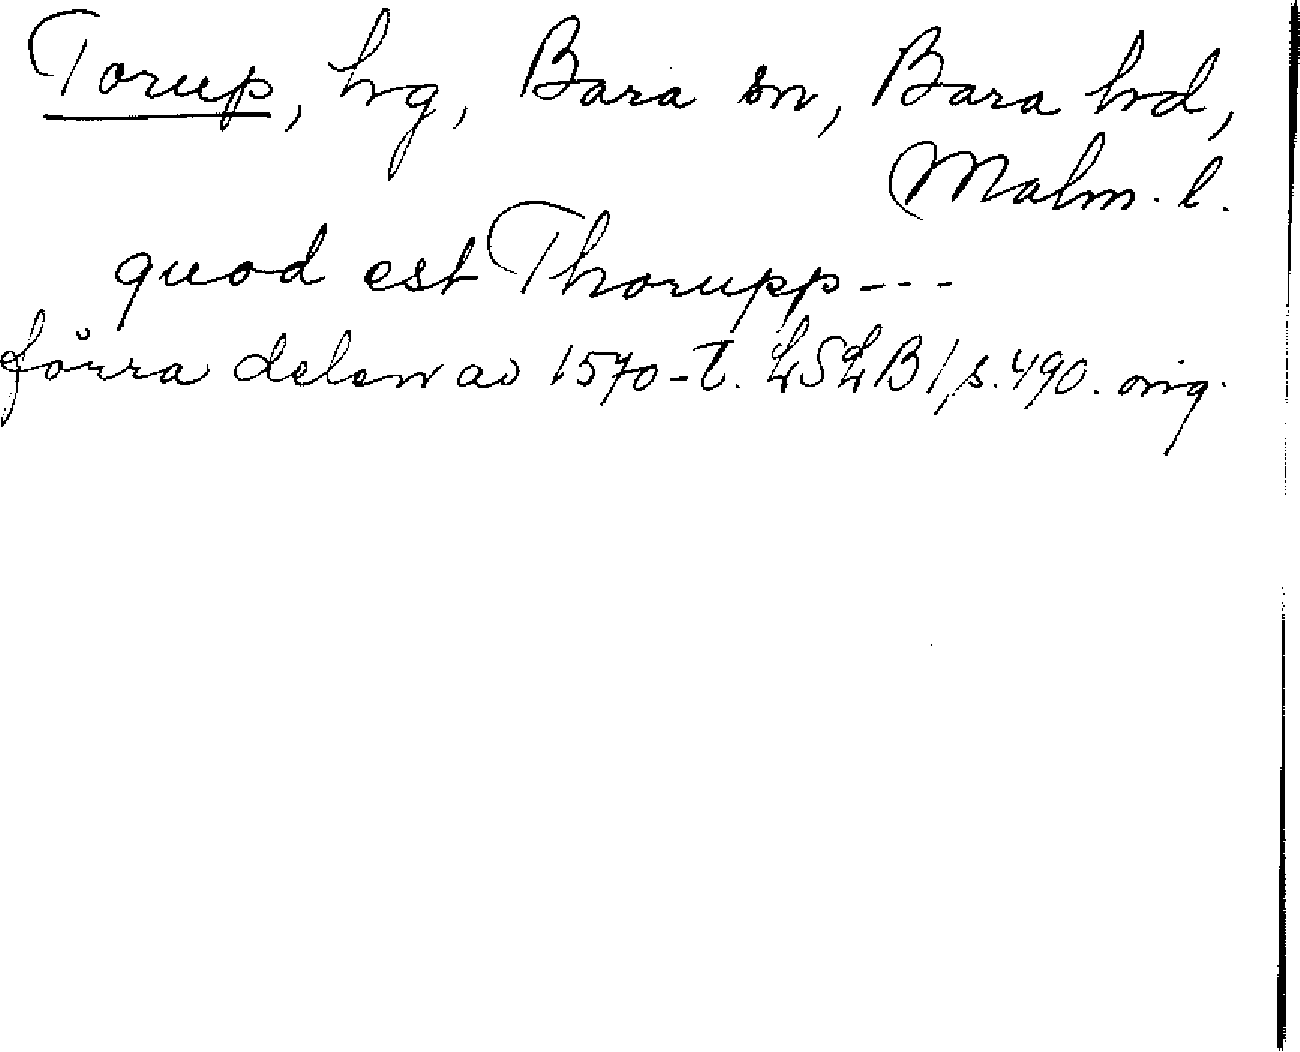 Torup, hg, Bara sn, Bara hd,
Malm. l.
quod est Thorupp---
förra delen av 1570-t. LSLB 1, s. 490. orig.